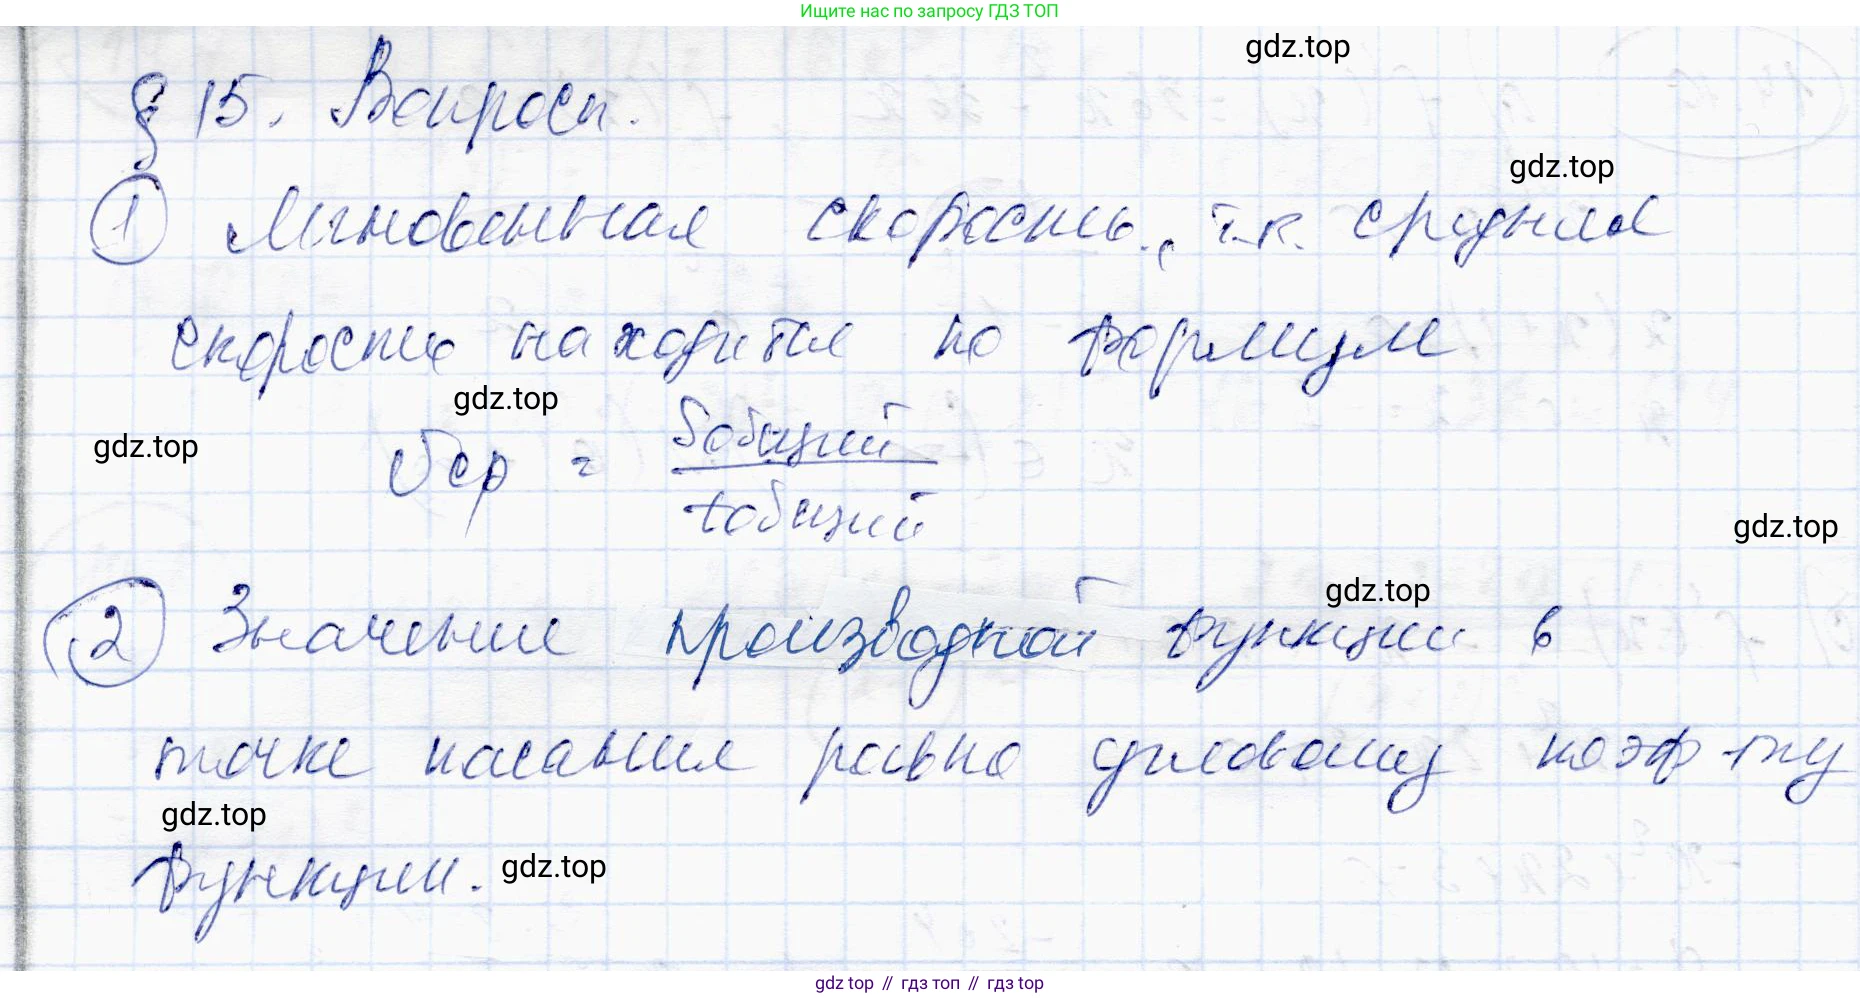 Ищите нас по запросу ГДЗ ТОП
gdz.top
§ 15. Вопросы.
gdz.top
① Мгновенная скорость, т.к. средняя
скорость находится по формуле
gdz.top
gdz.top
vср = Sобщий / tобщий
gdz.top
gdz.top
② Значение производной функции в
точке касания равно угловому коэф-ту
gdz.top
функции.
gdz.top
gdz top // гдз топ // gdz top